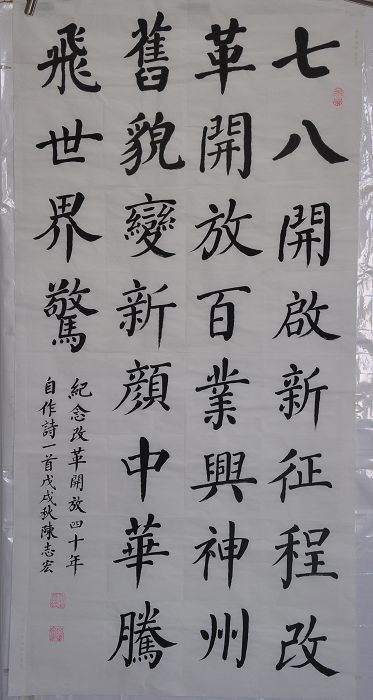 七八開啟新征程改
革開放百業興神州
舊貌變新顏中華騰
飛世界驚
紀念改革開放四十年
自作詩一首戊戌秋陳志宏